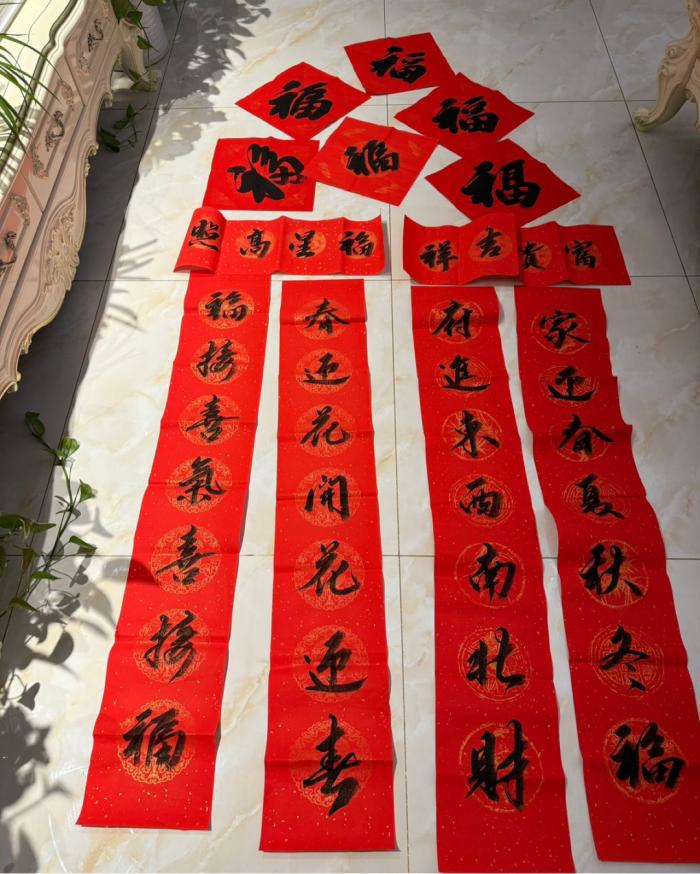 福
福
福
福
福
富貴吉祥
福星高照
家迎春夏秋冬福
府進東西南北財
春迎花開花迎春
福接喜氣喜接福